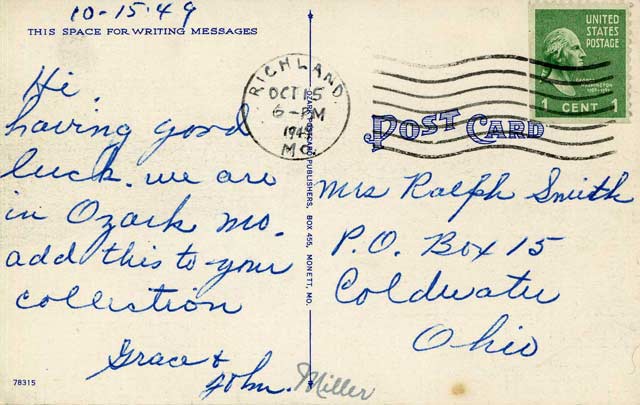 10-15-49
THIS SPACE FOR WRITING MESSAGES
Hi.
having good
luck. we are
in Ozark Mo.
add this to your
collection
Grace &
John. Miller
78315
OZARK POSTCARD PUBLISHERS, BOX 455, MONETT, MO.
RICHLAND
OCT 15
6-PM
1949
MO.
UNITED
STATES
POSTAGE
WASHINGTON
1 CENT 1
POST CARD
Mrs Ralph Smith
P.O. Box 15
Coldwater
Ohio